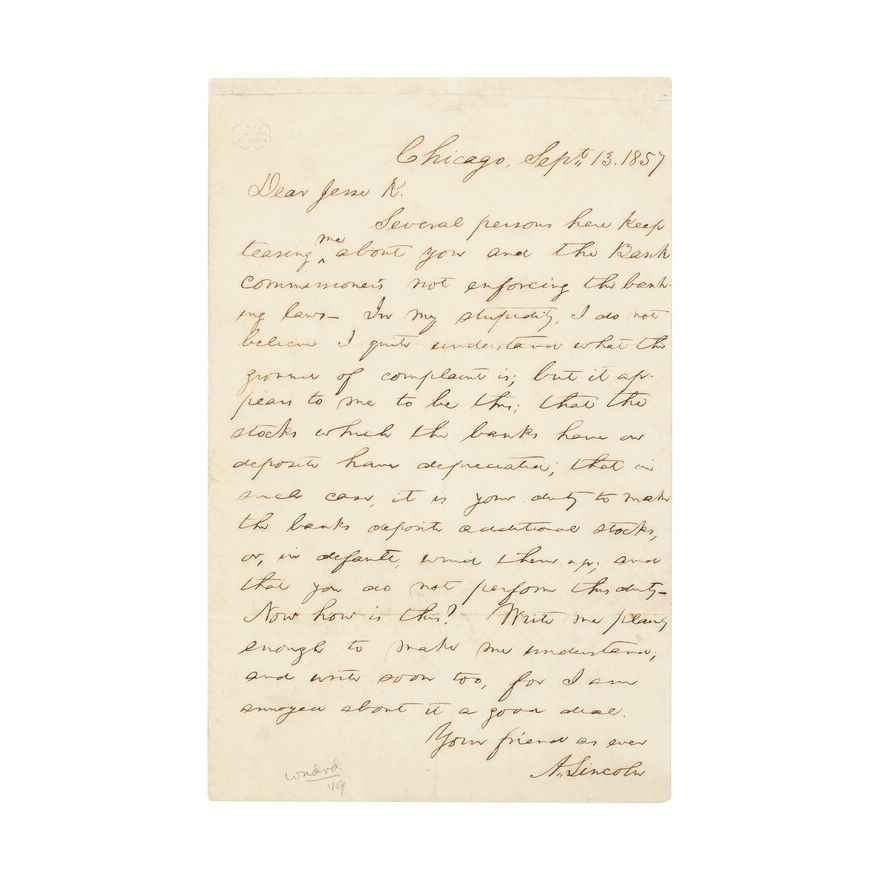 Chicago, Sept. 13. 1857
Dear Jesse K.
Several persons here keep
teasing me about you and the Bank
commissioners not enforcing the bank-
ing laws— In my stupidity, I do not
believe I quite understand what the
ground of complaint is; but it ap-
pears to me to be this; that the
stocks which the banks have on
deposite have depreciated; that in
such case, it is your duty to make
the banks deposite additional stocks,
or, in default, wind them up; and
that you do not perform this duty—
Now how is this? Write me plainly
enough to make me understand,
and write soon too, for I am
annoyed about it a good deal.
Your friend as ever
A. Lincoln
49